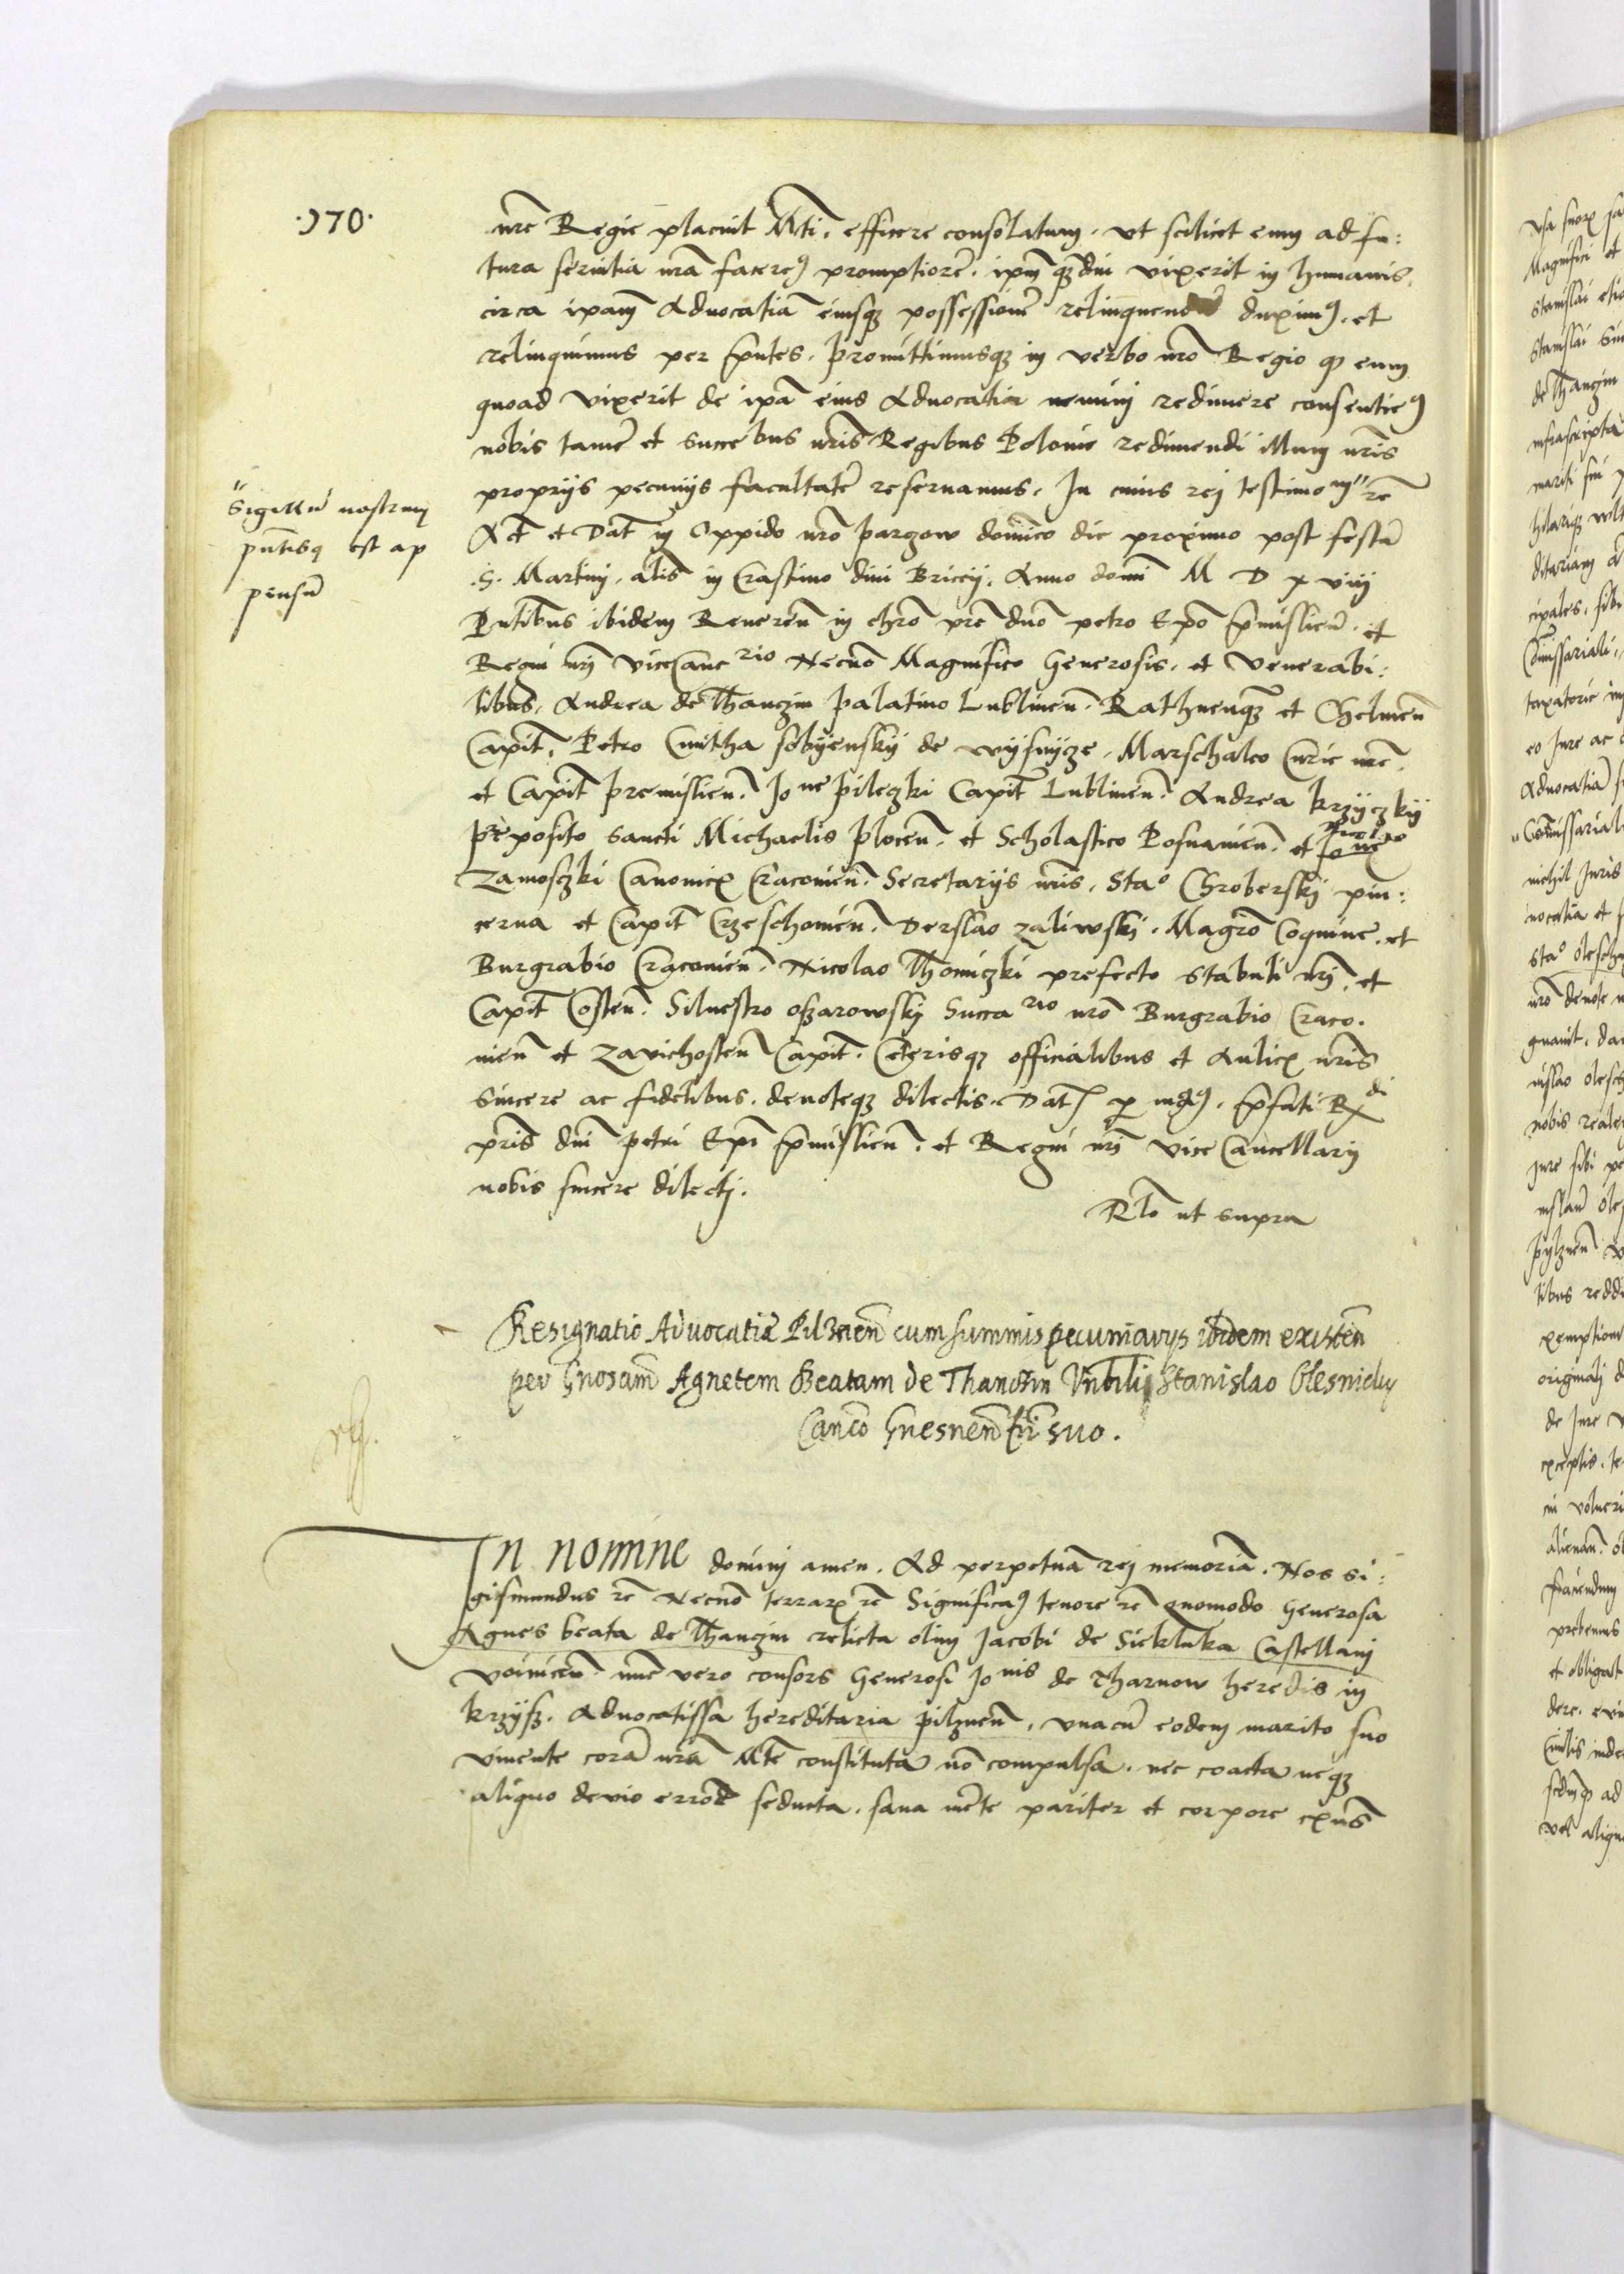 ·170·
nre Regie placuit Mti, efficere consolatum, vt scilicet eum ad fu:
tura seruitia nra facerem9 promptiore, ipm qz diu vixerit in humanis,
circa ipam Aduocatiam eiusqz possessione relinquendum duxim9, et
relinquimus per pntes, promittimusqz in verbo nro Regio qp eum
quoad vixerit de ipa eius Aduocatia nemini redimere consentiem9
nobis tame et succebus nris Regibus Polonie redimendi illam nris
proprijs pecunijs facultate reseruamus, In cuius rej testimonm" rc
Act et Dat in Oppido nro parczow dominico die proximo post festu
.S. Martinj, alis in Crastino diui Briccij, Anno domi M D x viij
Pntibus ibidem Reueren in chro pre duo petro Epo pmislien, et
Regni nrj viceCancrio Necno Magnifico Generosis, et Venerabi:
libus, Andrea de Thanczin palatino Lublinen, Rathnenqz et Chelmen
Capit, Petro Cmitha sobyenskij de wysnycze, Marschalco Curie nre,
et Capit premislien, Jone pileczki Capit Lublinen, Andrea krzyczkij
Preposito sancti Michaelis plocen, et Scholastico Posnanien, et Jone
Zamosczki Canonicx Cracouien, Secretarijs nris, Stao Chroberskj pin:
cerna et Capit Crzeschouien, Derslao zaliwskj, Magro Coquine, et
Burgrabio Cracouien, Nicolao Thomiczki prefecto stabuli nrj, et
Capit Costen, Siluestro ozarowskj Succario nro Burgrabio Craco.
uien et Zavichosten Capit, Ceterisqz officialibus et Aulicx nris
sincere ac fidelibus, deuoteqz dilectis, Dat p man9, pfati Rxdi
pris dni petri Epi pmislien, et Regni nrj vice Cancellarij
nobis sincere dilectj.
Rlo ut supra
"Sigillu nostrum
pntibq est ap
pensu
Resignatio Aduocatiae Pilznen cum summis pecuniarys ibidem existen
per Gnosam Agnetem Beatam de Thanczin Vnbili Stanislao Olesnicky
Canco Gnesnen fri suo.
In nomine dominj amen, Ad perpetua rej memoria, Nos si:
gismundus rc Necno terrarx rc Significam9 tenore rc quomodo Generosa
Agnes beata de Thanczin relicta olim Jacobi de Siekluka Castellanj
Voinicen, nuc vero consors Generosi Jonis de Tharnow heredis in
krzysz, Aduocatissa hereditaria pilznen, vnacu eodem marito suo
viuente cora nra Mte constituta no compulsa, nec coacta neqz
aliquo deuio errore seducta, sana mete pariter et corpore exns